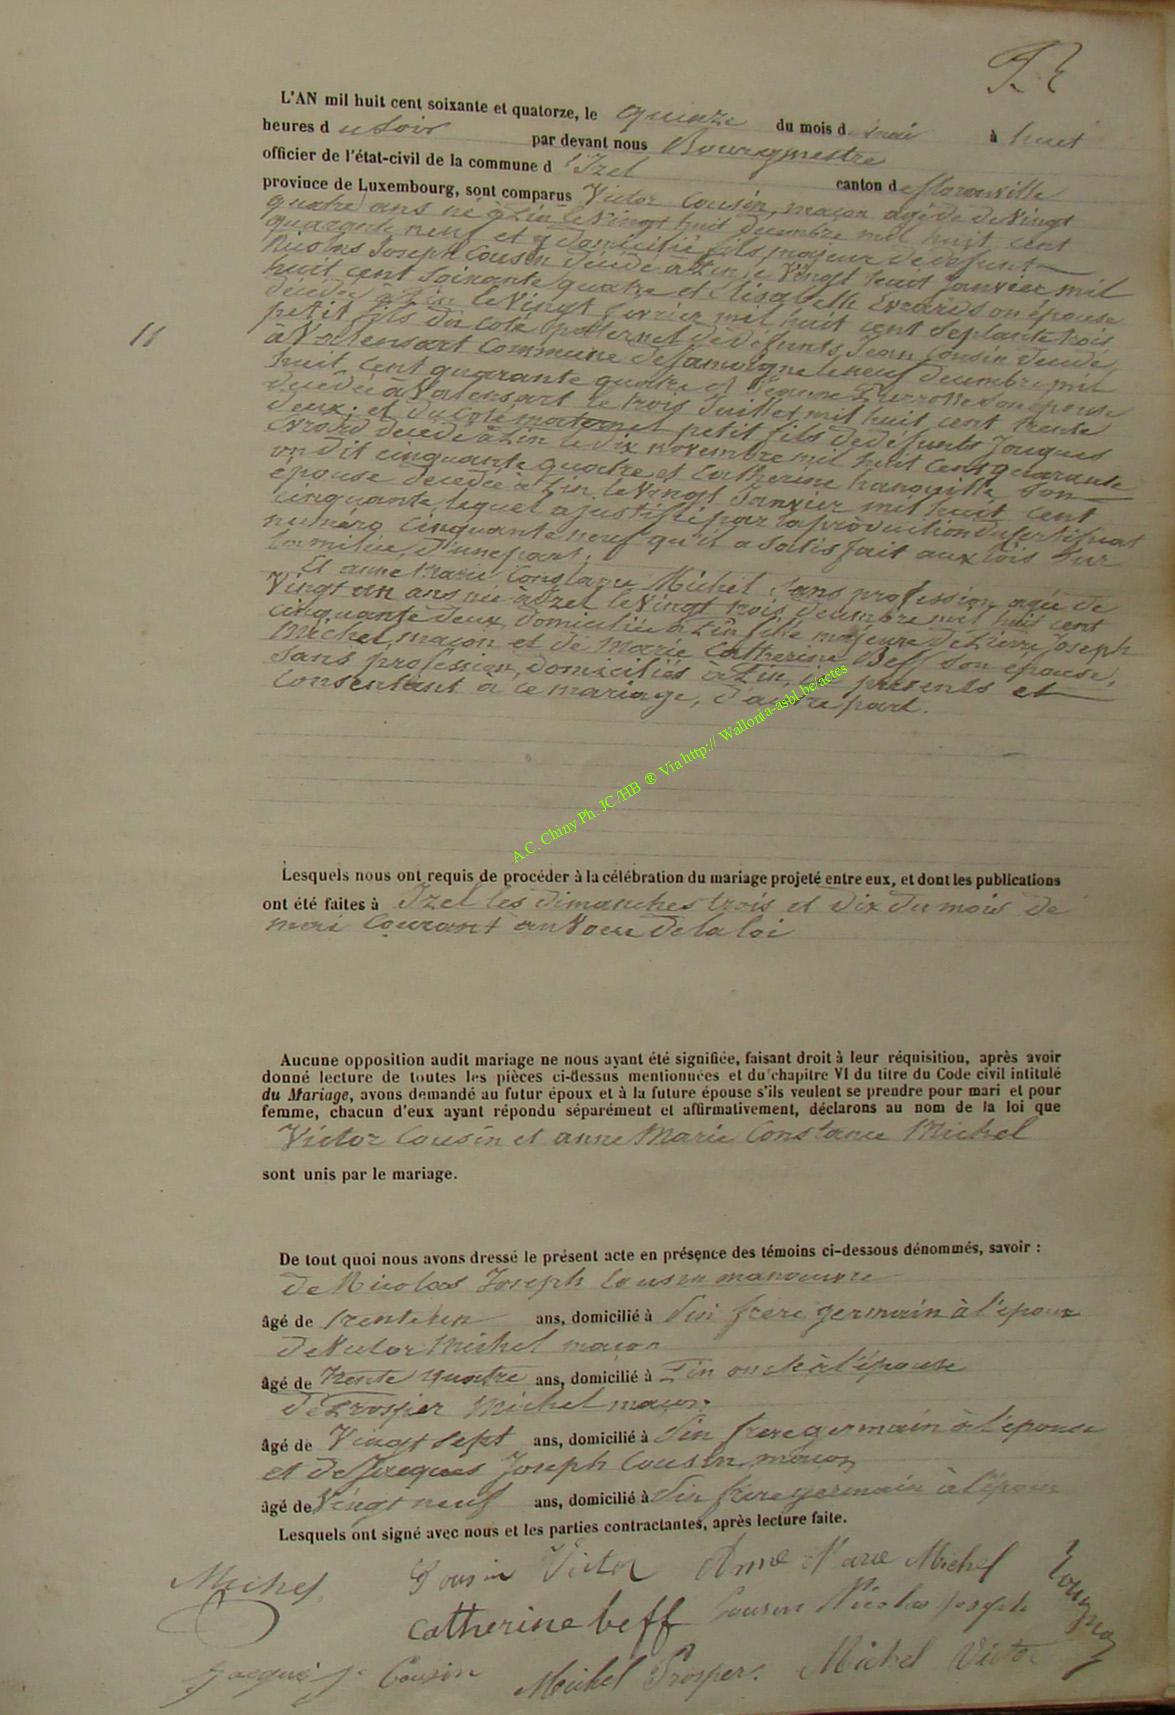 L'AN mil huit cent soixante et quatorze, le quinze du mois d mai à huit
heures d u soir par devant nous Bourgmestre
officier de l'état-civil de la commune d 'Izel canton de florenville
province de Luxembourg, sont comparus Victor Cousin, maçon agé de Vingt
quatre ans né à Pin le Vingt huit decembre mil huit cent
quarante neuf et y domicilié fils majeur de defunt
Nicolas Joseph Cousin décédé à Pin le Vingt huit Janvier mil
huit cent soixante quatre et Elisabelle Evrard son épouse
décédée à Pin le Vingt fevrier mil huit cent septante trois
petit fils du coté paternel de défunts Jean Cousin décédé
à Valensart Commune de Jamoigne le neuf decembre mil
11
huit cent quarante quatre et Jeanne Pierrosse son épouse
decédée à Valensart le trois Juillet mil huit cent trente
deux; et du coté maternel petit fils de défunts Jacques
Evrard décédé à Pin le dix novembre mil huit cent quarante
on dit cinquante quatre et Catherine hanouille son
épouse decédée à Pin le Vingt Janvier mil huit cent
cinquante lequel a justifié par la production du certificat
numéro cinquante neuf qu'il a satisfait aux lois sur
la milice, d'une part.
Et anne Marie Constance Michel sans profession agée de
Vingt un ans née à Izel le Vingt trois decembre mil huit cent
cinquante deux, domiciliée à Pin fille majeure de Pierre Joseph
Michel, maçon et de Marie Catherine Beff son épouse,
sans profession, domiciliés à Pin, ici présents et
Consentant à ce mariage, d'autre part.
A.C. Chiny Ph. JC/HB ® Via http:// Wallonia-asbl.be/actes
Lesquels nous ont requis de procéder à la célébration du mariage projeté entre eux, et dont les publications
ont été faites à Izel les dimanches trois et dix du mois de
mai courant au Voeu de la loi
Aucune opposition audit mariage ne nous ayant été signifiée, faisant droit à leur réquisition, après avoir
donné lecture de toutes les pièces ci-dessus mentionnées et du chapitre VI du titre du Code civil intitulé
du Mariage, avons demandé au futur époux et à la future épouse s'ils veulent se prendre pour mari et pour
femme, chacun d'eux ayant répondu séparément et affirmativement, déclarons au nom de la loi que
Victor Cousin et anne Marie Constance Michel
sont unis par le mariage.
De tout quoi nous avons dressé le présent acte en présence des témoins ci-dessous dénommés, savoir :
de Nicolas Joseph Cousin manoeuvre
âgé de trente un ans, domicilié à Pin frère germain à l'époux
de Victor Michel maçon
âgé de Trente quatre ans, domicilié à Pin oncle à l'épouse
de Prosper Michel maçon
âgé de Vingt sept ans, domicilié à Pin frere germain à l'épouse
et de Jacques Joseph Cousin, maçon
âgé de Vingt neuf ans, domicilié à Pin frère germain à l'époux
Lesquels ont signé avec nous et les parties contractantes, après lecture faite.
Michel Cousin Victor Anne Marie Michel
Catherine beff Cousin Nicolas Joseph
Jacque J. Cousin Michel Prosper. Michel Victor